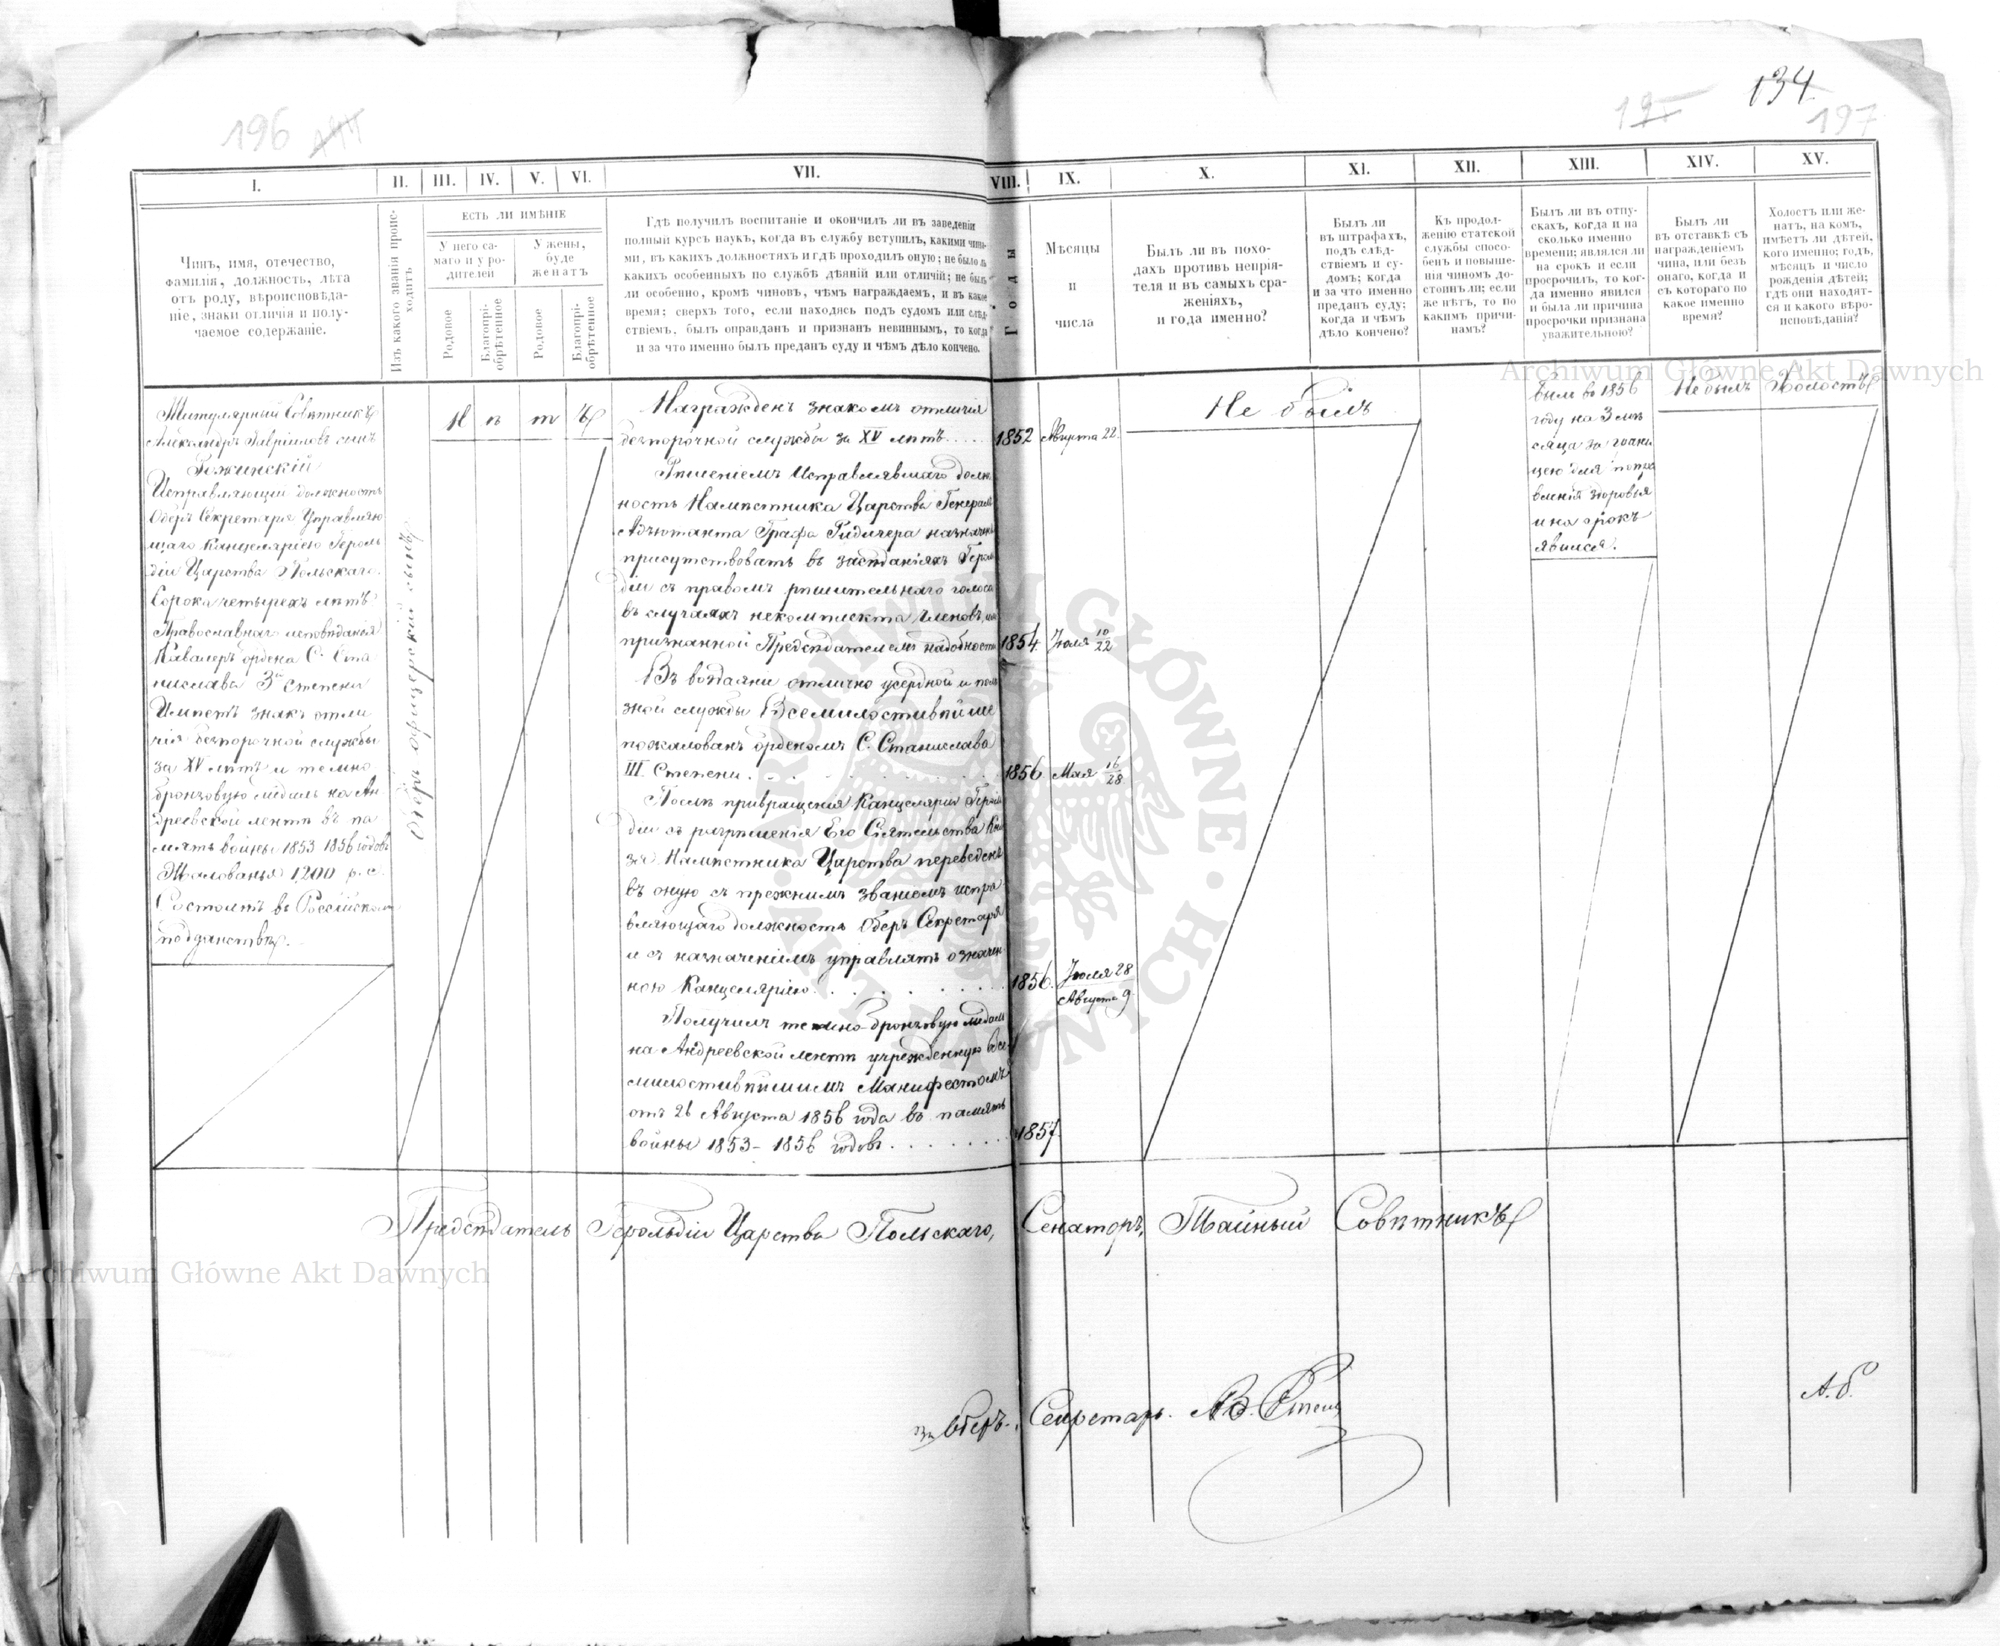 196
134
197
I.
II.
III.
IV.
V.
VI.
VII.
VIII.
IX.
X.
XI.
XII.
XIII.
XIV.
XV.
Чинъ, имя, отечество,
фамилія, должность, лѣта
отъ роду, вѣроисповѣда-
ніе, знаки отличія и полу-
чаемое содержаніе.
Изъ какого званія проис-
ходитъ
ЕСТЬ ЛИ ИМѢНІЕ
У него са-
маго и у ро-
дителей
У жены,
буде
женатъ
Родовое
Благопрі-
обрѣтенное
Родовое
Благопрі-
обрѣтенное
Гдѣ получилъ воспитаніе и окончилъ ли въ заведеніи
полный курсъ наукъ, когда въ службу вступилъ, какими чина-
ми, въ какихъ должностяхъ и гдѣ проходилъ оную; не было ли
какихъ особенныхъ по службѣ дѣяній или отличій; не былъ
ли особенно, кромѣ чиновъ, чѣмъ награждаемъ, и въ какое
время; сверхъ того, если находясь подъ судомъ или слѣд-
ствіемъ, былъ оправданъ и признанъ невиннымъ, то когда
и за что именно былъ преданъ суду и чѣмъ дѣло кончено.
Годы
Мѣсяцы
и
числа
Былъ ли въ похо-
дахъ противъ непрія-
теля и въ самыхъ сра-
женіяхъ,
и года именно?
Былъ ли
въ штрафахъ,
подъ слѣд-
ствіемъ и су-
домъ; когда
и за что именно
преданъ суду;
когда и чѣмъ
дѣло кончено?
Къ продол-
женію статской
службы спосо-
бенъ и повыше-
нія чиномъ до-
стоинъ ли; если
же нѣтъ, то по
какимъ причи-
намъ?
Былъ ли въ отпу-
скахъ, когда и на
сколько именно
времени; являлся ли
на срокъ и если
просрочилъ, то ког-
да именно явился
и была ли причина
просрочки признана
уважительною?
Былъ ли
въ отставкѣ съ
награжденіемъ
чина, или безъ
онаго, когда и
съ котораго по
какое именно
время?
Холостъ или же-
натъ, на комъ,
имѣетъ ли дѣтей,
кого именно; годъ,
мѣсяцъ и число
рожденія дѣтей;
гдѣ они находят-
ся и какого вѣро-
исповѣданія?
Титулярный Совѣтникъ
Александръ Гавріиловъ сынъ
Исправляющій должность
Оберъ Секретаря Управляю
щаго Канцеляріею Героль
діи Царства Польскаго.
Сорока четырехъ лѣтъ
Православнаго исповѣданія
Кавалеръ ордена С. Ста
нислава 3й степени
Имѣетъ знакъ отли
чія безпорочной службы
за XV лѣтъ и темно
бронзовую медаль на Ан
дреевской лентѣ въ па
мять войны 1853-1856 годовъ
Жалованья 1200 р. с.
Состоитъ въ Россійскомъ
подданствѣ.
Оберъ офицерскій сынъ
Н ѣ т ъ
Награжденъ знакомъ отличія
безпорочной службы за XV лѣтъ . . . . 1852 Августа 22.
Рѣшеніемъ Исправлявшаго долж
ность Намѣстника Царства Генералъ
Адъютанта Графа Ридигера назначенъ
присутствовать въ засѣданіяхъ Героль
діи съ правомъ рѣшительнаго голоса
въ случаяхъ некомплекта Членовъ, или
признанной Предсѣдателемъ надобности 1854. Іюля 10/22
Въ воздаяніи отлично усердной и поле
зной службы Всемилостивѣйше
пожалованъ орденомъ С. Станислава
III. Степени . . . . . . . 1856 Мая 16/28
Послѣ превращенія Канцеляріи Героль
діи съ разрѣшенія Его Сіятельства Кня
зя Намѣстника Царства переведенъ
въ оную съ прежнимъ званіемъ испра
вляющаго должность Оберъ Секретаря
и съ назначеніемъ управлять означен
ною Канцеляріею . . . . . . . 1856. Іюля 28/Августа 9.
Получилъ темно-бронзовую медаль
на Андреевской лентѣ учрежденную Все
милостивѣйшимъ Манифестомъ
отъ 26 Августа 1856 года въ память
войны 1853-1856 годовъ . . . . . . . 1857.
Не былъ
Былъ въ 1856
году на 3 мѣ
сяца за грани
цею для попра
вленія здоровья
и на срокъ
явился.
Не былъ
Холостъ
Предсѣдатель Герольдіи Царства Польскаго, Сенаторъ, Тайный Совѣтникъ
за Оберъ-Секретарь.
А.б.
Archiwum Główne Akt Dawnych
Archiwum Główne Akt Dawnych
ARCHIWUM GŁÓWNE AKT DAWNYCH